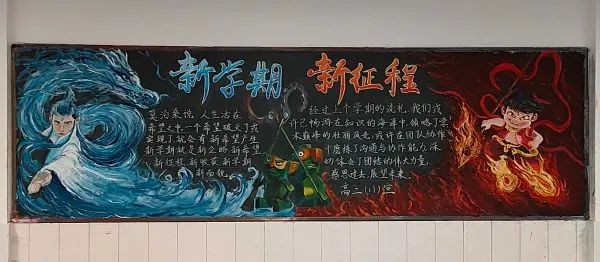 新学期 新征程
莫泊桑说，人生活在
希望之中，一个希望破灭了或
实现了，就会有新希望产生
新学期就是新会的新希望
新征程，新收获，新学期
新面貌。
经过上个学期的洗礼，我们或
许已畅游在知识的海洋中，领略了
风巅峰的壮丽风光，或许在团队协作
中磨练了沟通与协作能力，深
切体会了团结的伟大力量。
感恩过去，展望未来
高二（11）宣